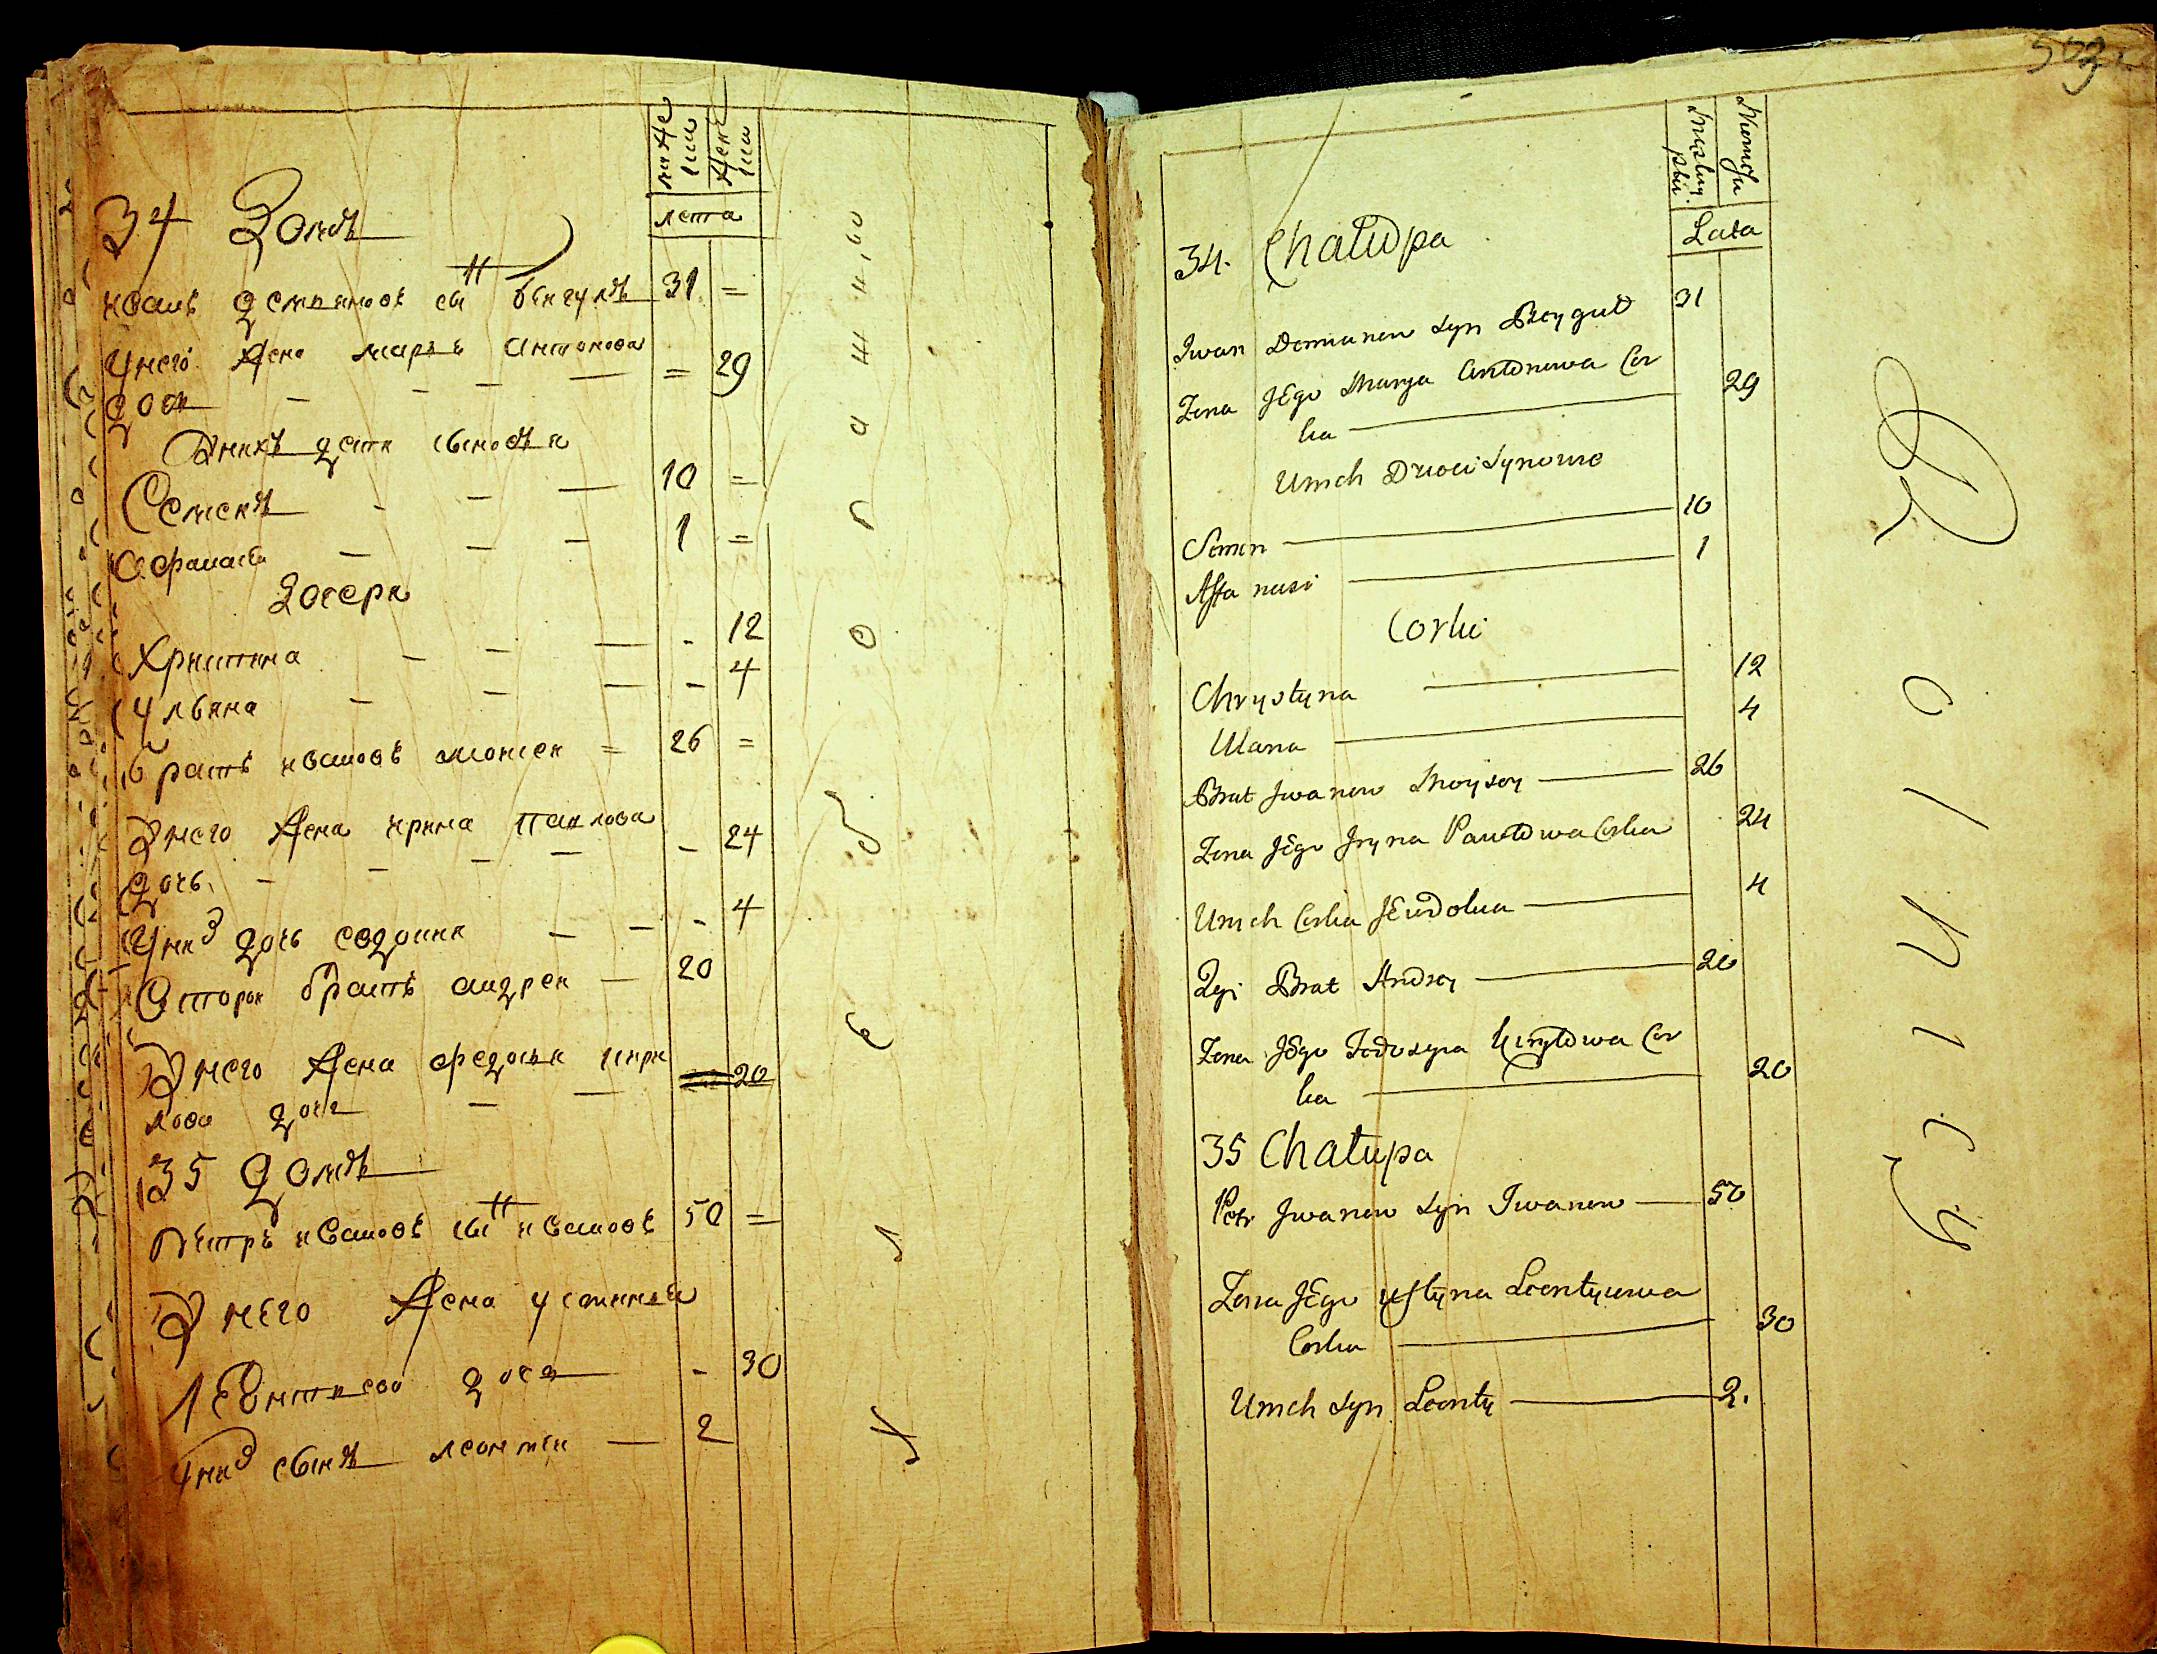 муже
ска
женс
ка
лета
34 Домъ
иванъ демяновъ сынъ бейгулъ 31 =
Унего жена маръя антонова
дочь — — — = 29
Унихъ дети сыновъя
Семенъ — — — 10 =
афанасеи — — — 1 =
Дочери
Христина — — — - 12
Ульяна — — — - 4
братъ ивановъ моисеи = 26 =
Унего жена ирина павлова
дочь — — — — - 24
Уних дочь евдокия — — - 4
вторый братъ андреи — 20
Унего жена федосья кири
лова дочь — — 20
35 Домъ
Петръ ивановъ сынъ ивановъ 50 =
Унего жена устинъя
леонтиева дочь - 30
Уних сынъ леонтеи — 2
503
Męzkiy
Lata
34. Chałupa
Jwan Demianow Syn Beyguł 31
Zona JEgo Marya Antonowa Cor
ka 29
Unich Dzieci Synowie
Semen 10
Affanasi 1
Corki
Chrystyna 12
Ulana 4
Brat Jwanow Moysey 26
Zona JEgo Jryna Pawłowa Corka 24
Unich Corka JEwdokia 4
2gi Brat Andrey 20
Zona JEgo Fedosya Kiryłowa Cor
ka 20
35 Chałupa
Petr Jwanow Syn Jwanow 50
Zona JEgo Ustyna Leontyewa
Corka 30
Unich Syn Leonty 2.